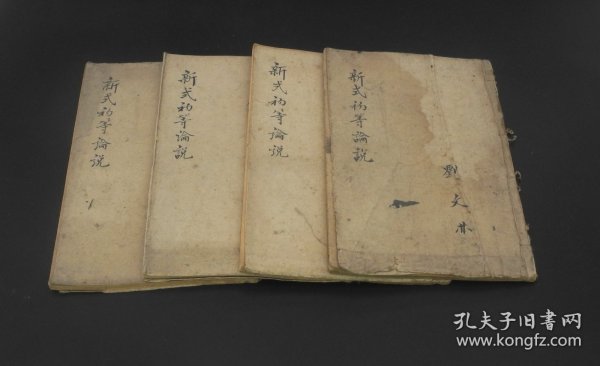 新式初等論説
新式初等論説
新式初等論説
新式初等論説
劉文
孔夫子旧书网
www.kongfz.com